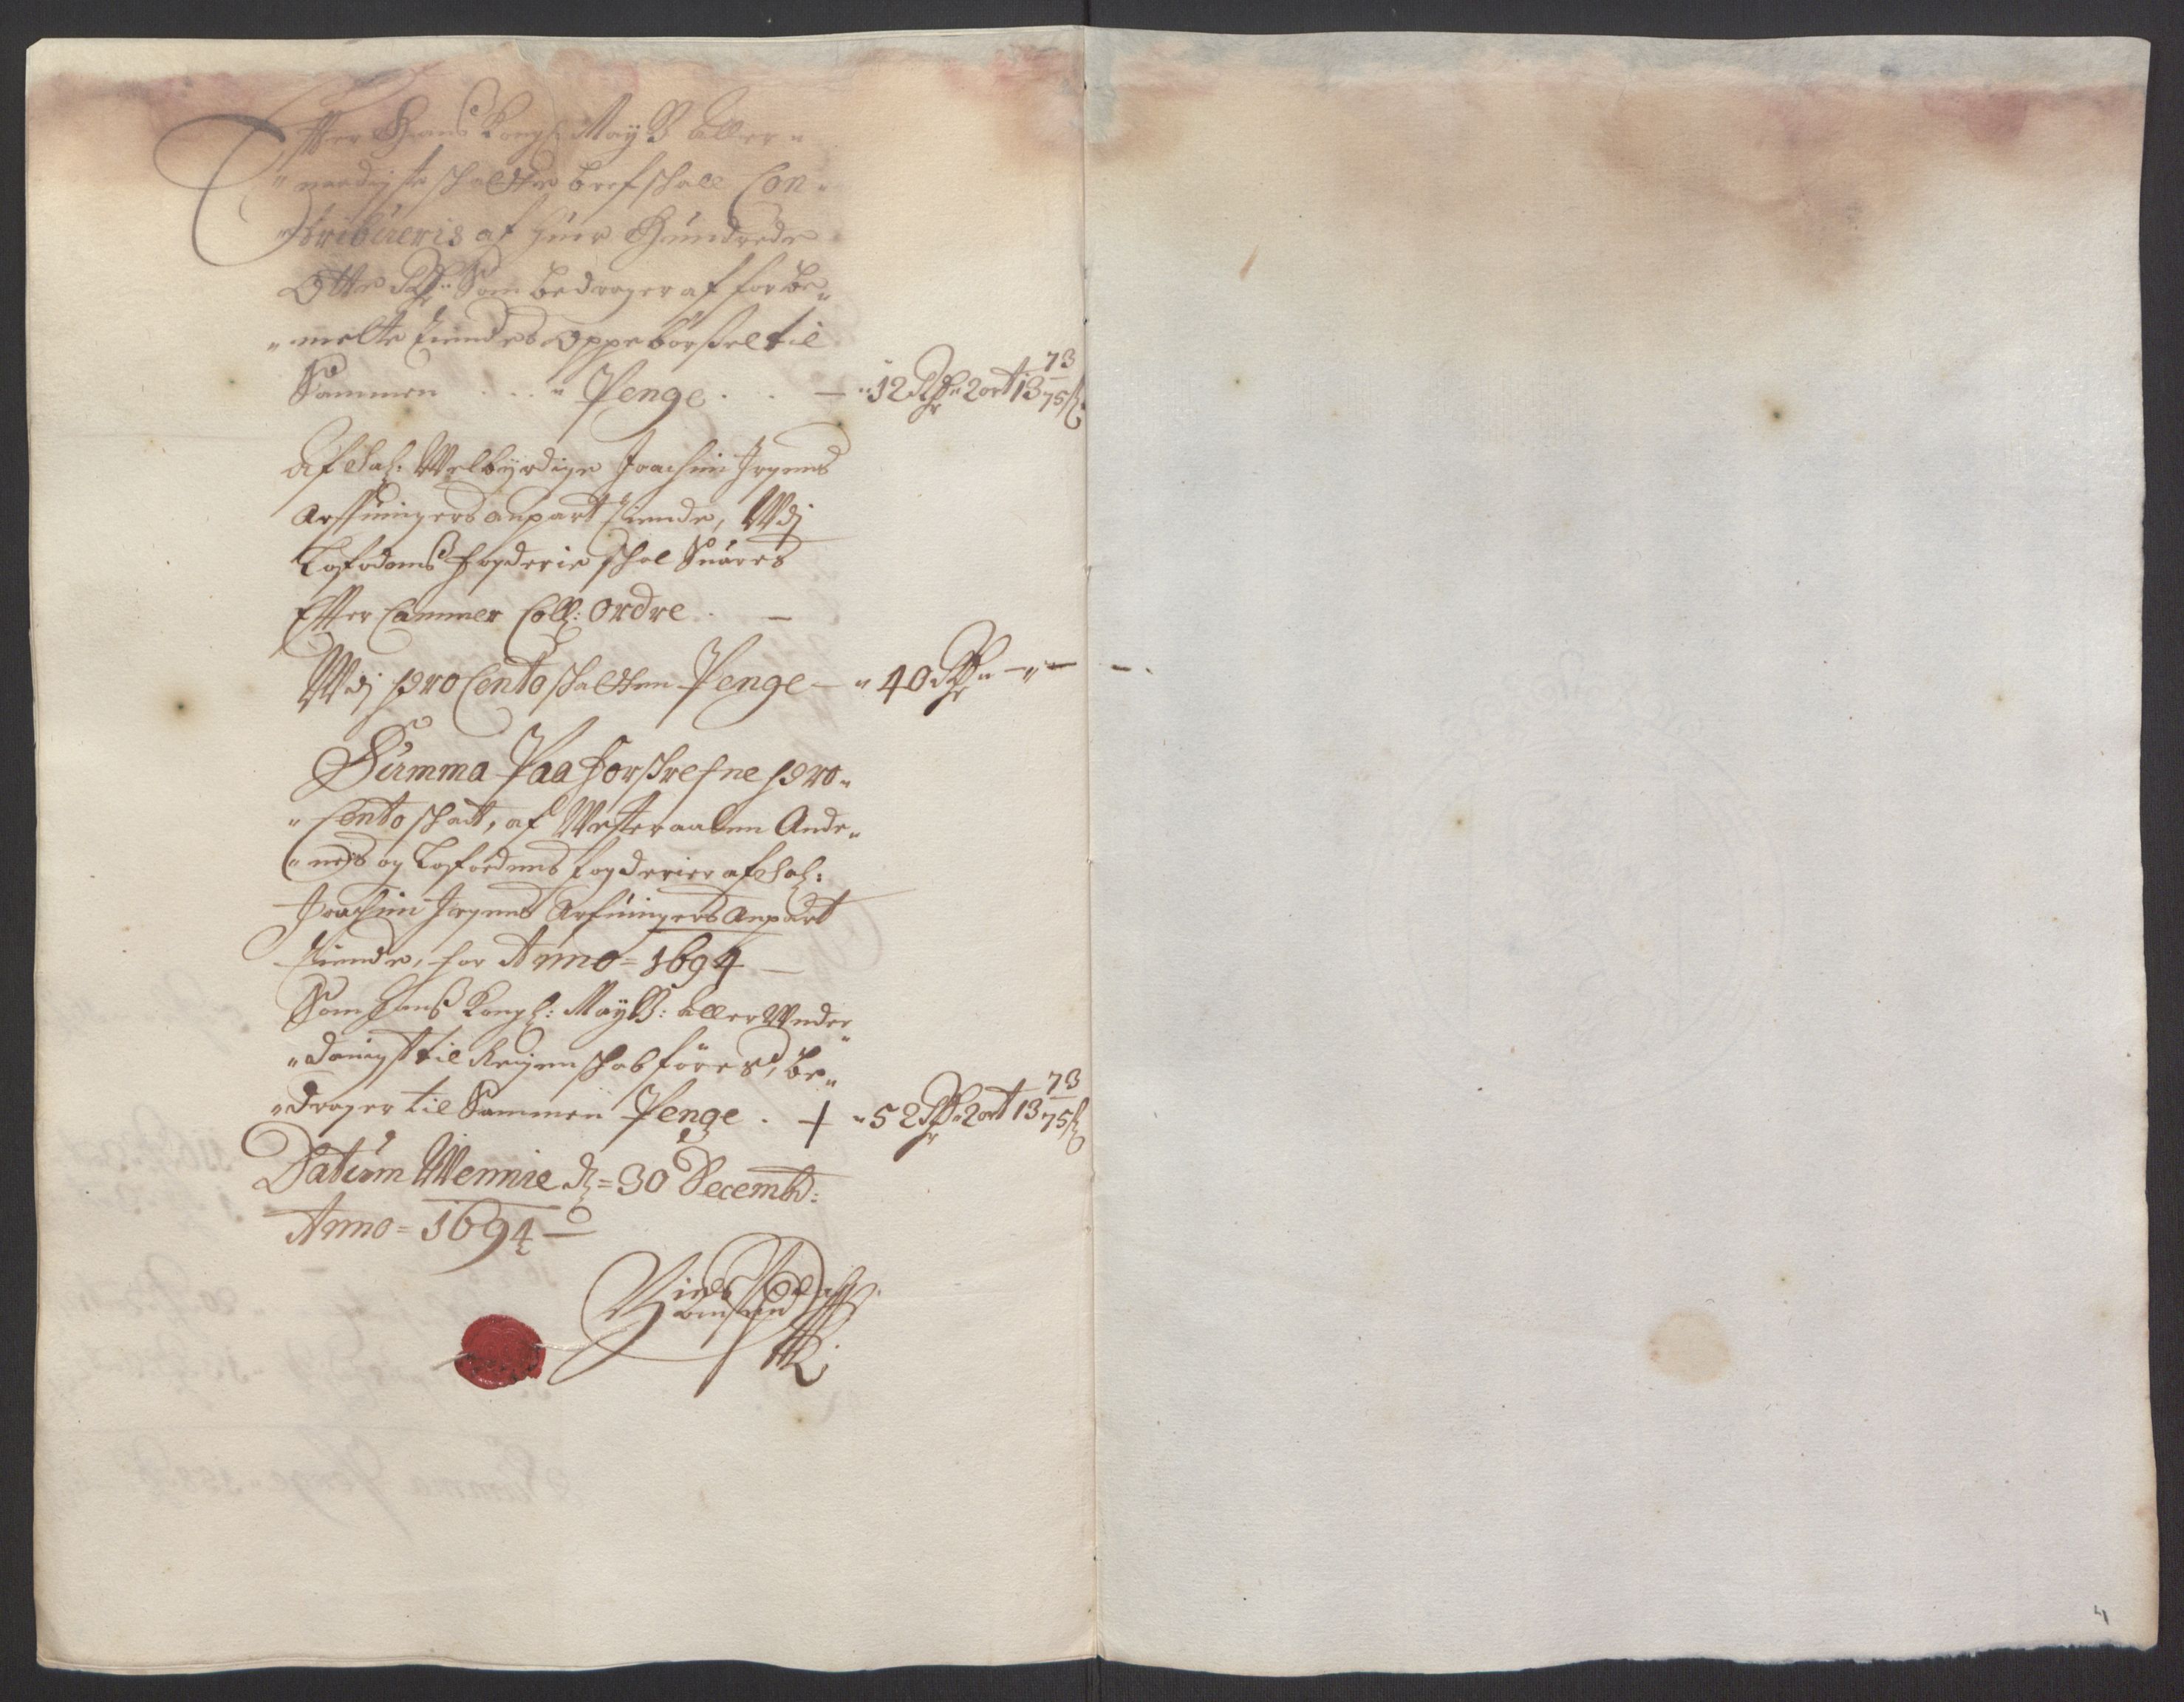 Efter Hans Kongl: Mayts aller„
„naadigste schatte bref schall Con„
„tribueris af huer Hundrede
Otte Rdr„ Som bedrager af forbe„
„melte tiendes oppebørsel til
Sammen . . . „ Penge . . — „12 Rdr„ 2 ort 13 73/75 s
Af Sal: Welbyrdige Joachim Irgens
Arfuingers anpart tiende, Wdj
Lofodens fogderie schal Suares
Efter Cammer Coll: Ordre . —
Wdj pro Cento schatten Penge — „ 40 Rdr„ — „ —
Summa Paa forschrefne pro„
„Cento schatt, af Westeraalen Ande„
„nes og Lofodens fogderier af Sal:
Joachim Irgens Arfuingers Anpart
tiende, for Anno = 1694 —
Som Hans Kongl: Mayts: aller Under
„danigst til Reigenschab føres, be„
„drager til Sammen Penge . + „52 Rdr„ 2 ort 13 73/75 s
Datum Wennie d = 30 Decembr:
Anno = 1694 —
4